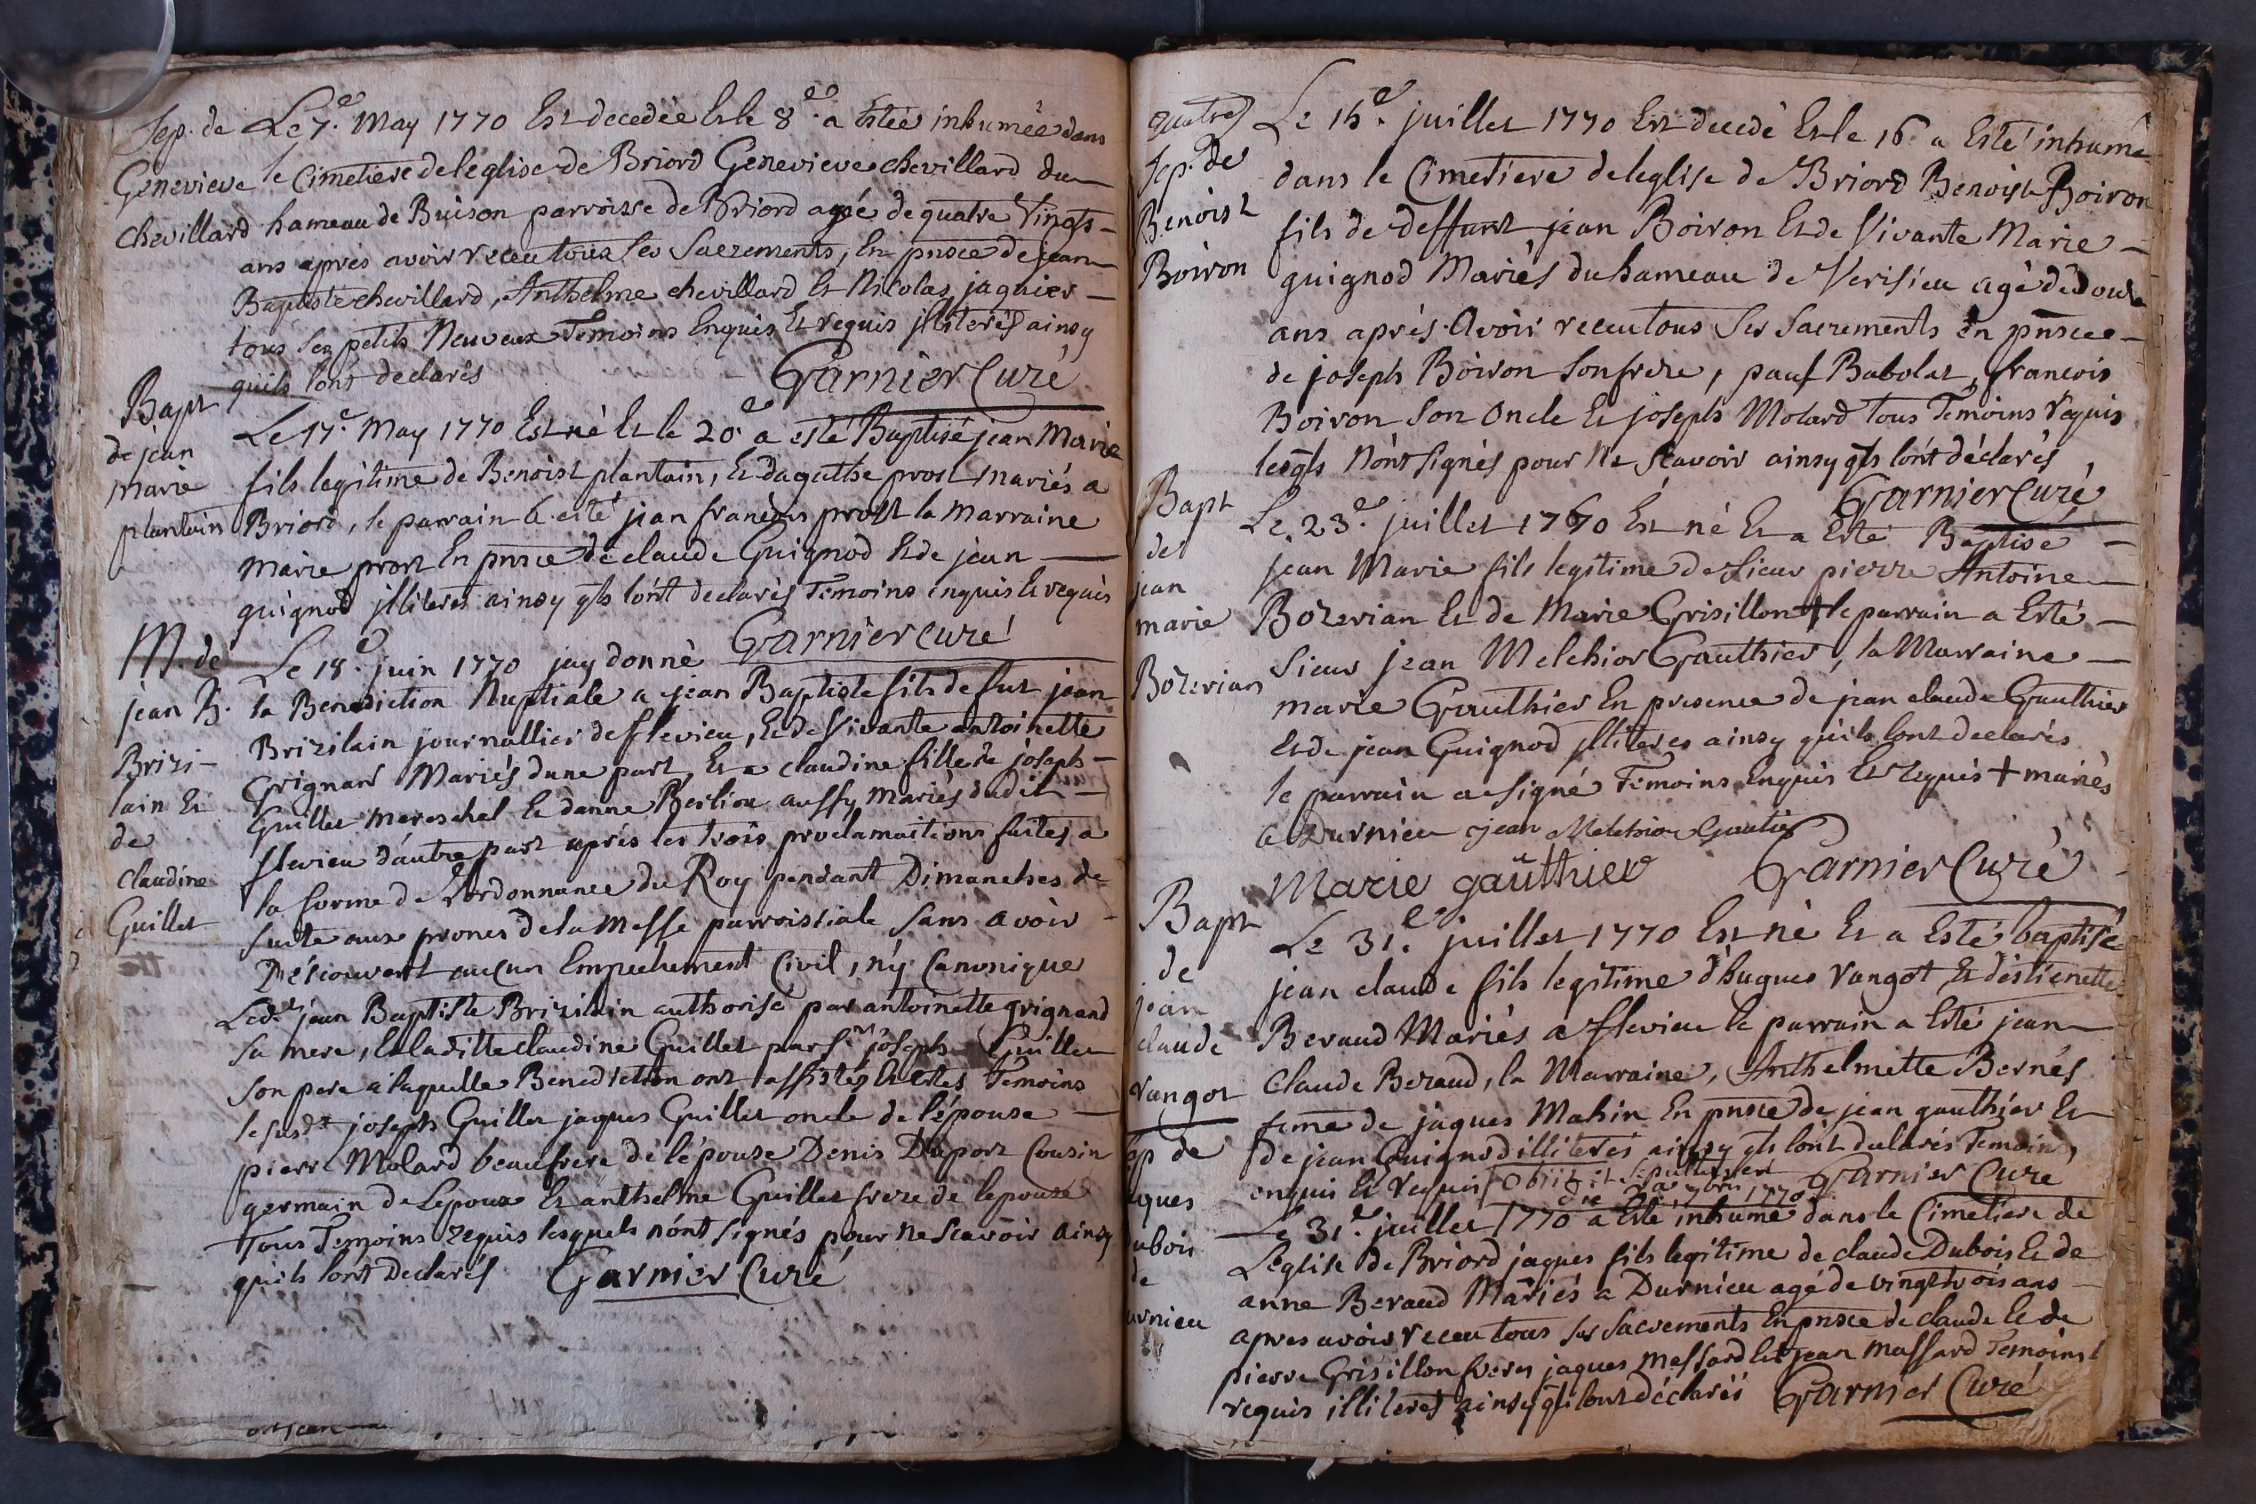 Sep. de
Genevieve
chevillard
Le 7.e May 1770 Est decedée Et le 8.e a Estée inhumée dans
le Cimetiere de leglise de Briord Genevieve chevillard du
hameau de Buison parroisse de Briord agée de quatre Vingts
ans aprés avoir receu tous ses Sacrements, En pnsce de jean
Baptiste chevillard, Anthelme chevillard Et Nicolas jaquier
tous ses petits Neuveux Temoins Enquis Et requis illiterés ainsy
quils lont declarés Garnier Curé
Bapt
de jean
marie
plantain
Le 17.e May 1770 Est né Et le 20.e a esté Baptisé jean Marie
fils legitime de Benoist plantain, Et dagathe prost mariés a
Briord, le parrain a esté jean francois prost la Marraine
Marie prost En pnsce de claude Guignod Et de jean
guignod illiteres ainsy qls lont declarés Temoins enquis Et requis
Garnier curé
M. de
jean B.
Brizi-
lain Et
de
claudine
Guillet
Le 18.e juin 1770 jay donné
la Benediction Nuptiale a jean Baptiste fils de fut jean
Brizilain journallier de flevieu, Et de Vivante antoinette
Grignand Mariés dune part, Et a claudine fille de joseph
Guillet mareschal Et danne Berliou aussy mariés dudit
flevieu dautre part aprés les trois proclamaitions faites a
la forme de Lordonnance du Roy pendant Dimanches de
suite aux prones de la Messe parroissiale Sans avoir
Découvert aucun Empechement Civil, ny Canonique
Led.t jean Baptiste Brizilain authorisé par antoinette grignand
Sa mere, Et la ditte claudine Guillet par s.r joseph Guillet
Son pere a laquelle Benediction ont assistés Et Estes Temoins
le susd.t joseph Guillet jaques Guillet oncle de lépouse
pierre Molard beaufrere de lépouse Denis Duport Cousin
germain de Lepoux Et anthelme Guillet frere de lepouse
Tous Temoins requis lesquels nónt signés pour ne Scavoir ainsy
quils lont Declarés Garnier Curé
quatre
Sep. de
Benoist
Boiron
Le 15.e juillet 1770 Est decedé Et le 16 a Esté inhumé
dans le Cimetiere de leglise de Briord Benoist Boiron
fils de deffunt jean Boiron Et de Vivante Marie
guignod Mariés du hameau de Verisieu agé de douze
ans aprés avoir receu tous Ses Sacrements En pnscee
de joseph Boiron Son frere, paul Babolat, francois
Boiron Son Oncle Et joseph Molard tous Temoins requis
lesqls Nónt Signés pour Ne Scavoir ainsy qls lónt déclarés
Garnier Curé
Bapt
de
jean
marie
Bozerian
Le 23.e juillet 1770 Est né Et a Esté Baptisé
jean Marie fils legitime de Sieur pierre Antoine
Bozerian Et de Marie Grisillon + le parrain a Esté
Sieur jean Melchior Gauthier, la Marraine
marie Gauthier En presence de jean claude Gauthier
Et de jean Guignod illiteres ainsy quils lont declarés
le parrain a signé Temoins Enquis Et requis + mariés
a Durnieu jean Melchior Gautier
Marie gauthier Garnier Curé
Bapt
de
jean
claude
Vangot
Le 31.e juillet 1770 Est né Et a Esté baptisé
jean claude fils legitime d'hugues Vangot Et destienette
Beraud Mariés a flevieu le parrain a Esté jean
Claude Beraud, la Marraine, Anthelmette Bernés
feme de jaques Mahin En pnsce de jean gauthier Et
de jean Guignod illiterés ainsy qls lónt declarés Temoins
enquis Et requis obiit et sepultus est
die 7bris 1770 Garnier Curé
Sep de
jaques
Dubois
de
Durnieu
Le 31.e juillet 1770 a Esté inhumé dans le Cimetiere de
Léglise de Briord jaques fils legitime de claude Dubois Et de
anne Beraud Mariés a Durnieu agé de vingt trois ans
apres avoir receu tous ses Sacrements En pnsce de claude Et de
pierre Grisillon freres jaques Massard Et jean Massard Temoins
requis illiterés ainsy qls lont déclarés Garnier Curé